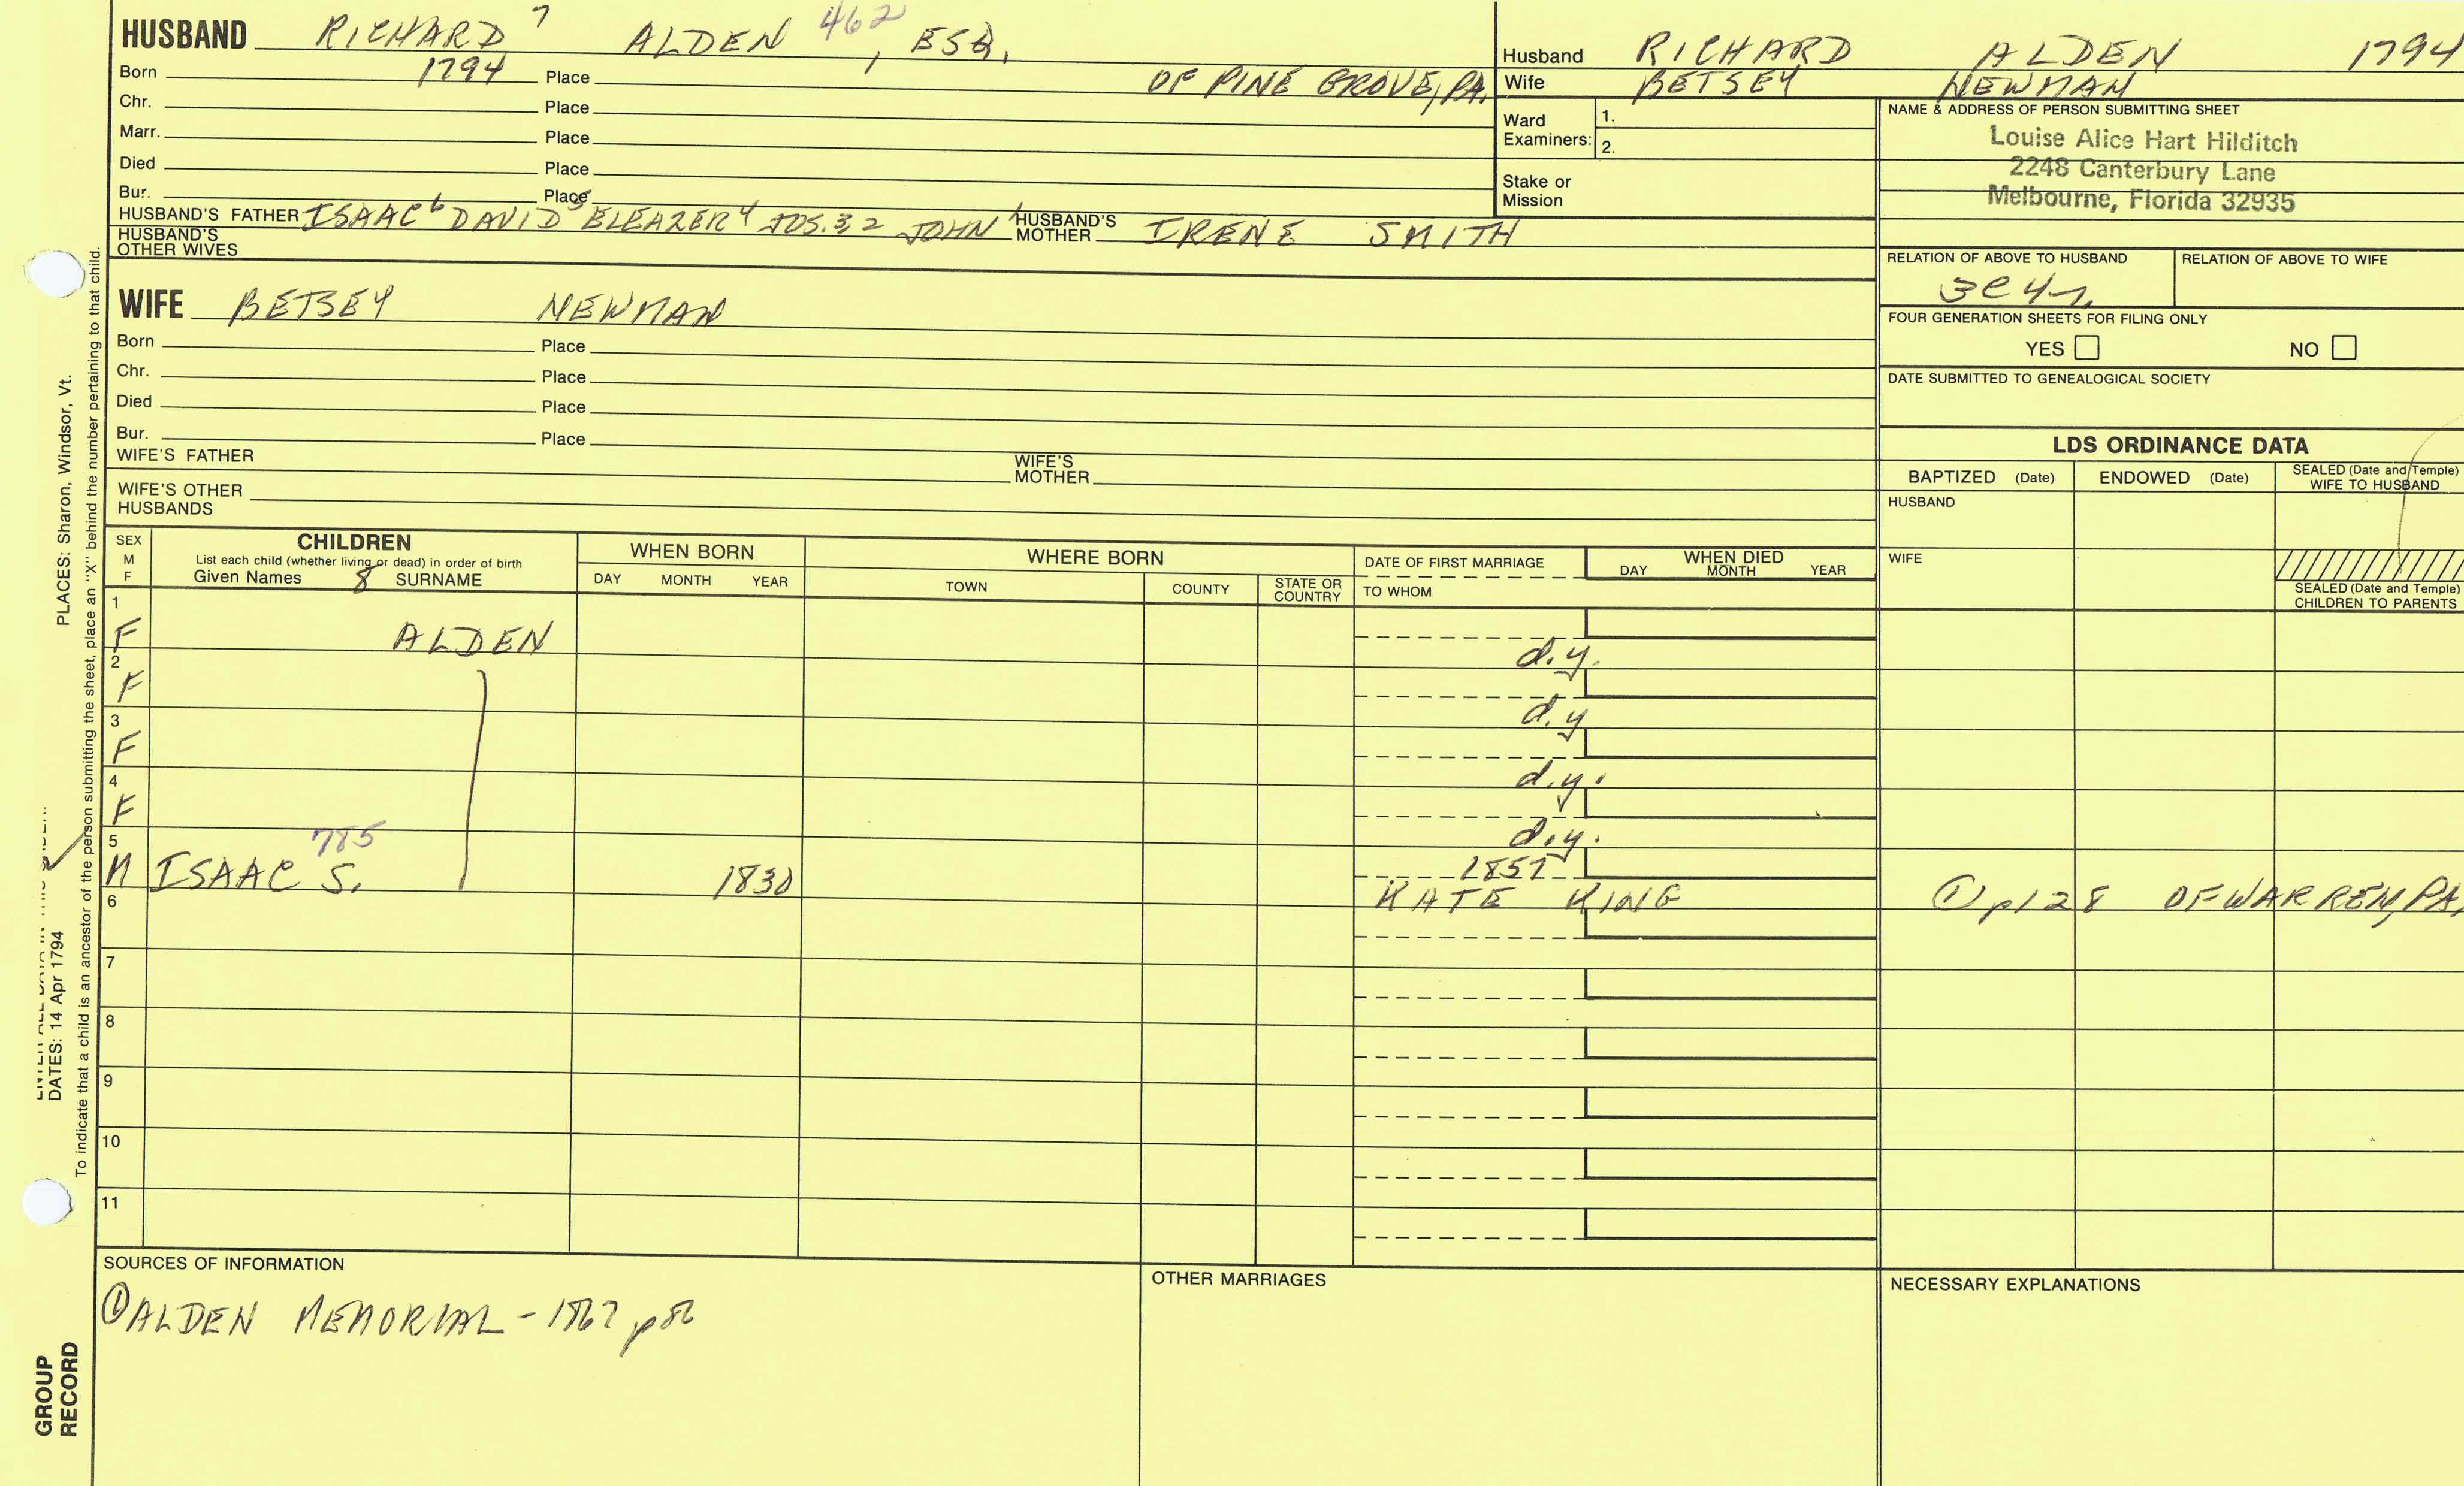 HUSBAND RICHARD 7 ALDEN 462, ESQ.
Born 1794 Place OF PINE GROVE, PA.
Chr. Place
Marr. Place
Died Place
Bur. Place
HUSBAND'S FATHER ISAAC 6 DAVID 5 ELEAZER 4 JOS. 3 2 JOHN 1 HUSBAND'S MOTHER IRENE SMITH
HUSBAND'S OTHER WIVES
WIFE BETSEY NEWMAN
Born Place
Chr. Place
Died Place
Bur. Place
WIFE'S FATHER WIFE'S MOTHER
WIFE'S OTHER HUSBANDS
Husband RICHARD ALDEN 1794
Wife BETSEY NEWMAN
Ward Examiners: 1.
2.
Stake or Mission
NAME & ADDRESS OF PERSON SUBMITTING SHEET
Louise Alice Hart Hilditch
2248 Canterbury Lane
Melbourne, Florida 32935
RELATION OF ABOVE TO HUSBAND RELATION OF ABOVE TO WIFE
3c4r
FOUR GENERATION SHEETS FOR FILING ONLY
YES NO
DATE SUBMITTED TO GENEALOGICAL SOCIETY
LDS ORDINANCE DATA
BAPTIZED (Date) ENDOWED (Date) SEALED (Date and Temple) WIFE TO HUSBAND
HUSBAND
WIFE
SEALED (Date and Temple) CHILDREN TO PARENTS
SEX M F
CHILDREN
List each child (whether living or dead) in order of birth
Given Names 8 SURNAME
WHEN BORN
DAY MONTH YEAR
WHERE BORN
TOWN COUNTY STATE OR COUNTRY
DATE OF FIRST MARRIAGE
TO WHOM
WHEN DIED
DAY MONTH YEAR
1
F ALDEN
d.y.
2
F
d.y
3
F
d.y.
4
F
d.y.
5 785
M ISAAC S. 1830 1857
KATE KING ① p128 OF WARREN, PA,
6
7
8
9
10
11
SOURCES OF INFORMATION
① ALDEN MEMORIAL - 1867 p86
OTHER MARRIAGES
NECESSARY EXPLANATIONS
PLACES: Sharon, Windsor, Vt.
DATES: 14 Apr 1794
To indicate that a child is an ancestor of the person submitting the sheet, place an "X" behind the number pertaining to that child.
GROUP
RECORD